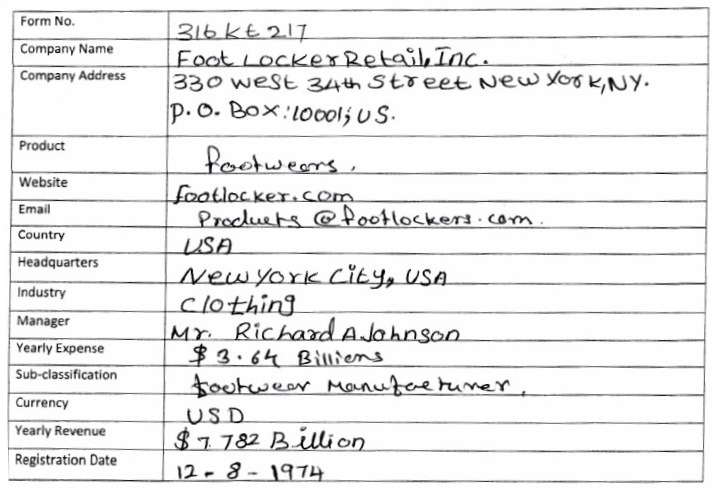 Form No. 316kt217
Company Name Foot Locker Retail, Inc.
Company Address 330 west 34th street New York, NY.
P.O. Box:10001; US.
Product footwears.
Website footlocker.com
Email Products@footlockers.com.
Country USA
Headquarters New York City, USA
Industry Clothing
Manager Mr. Richard A. Johnson
Yearly Expense $3.64 Billions
Sub-classification footwear Manufacturer.
Currency USD
Yearly Revenue $7.782 Billion
Registration Date 12-8-1974